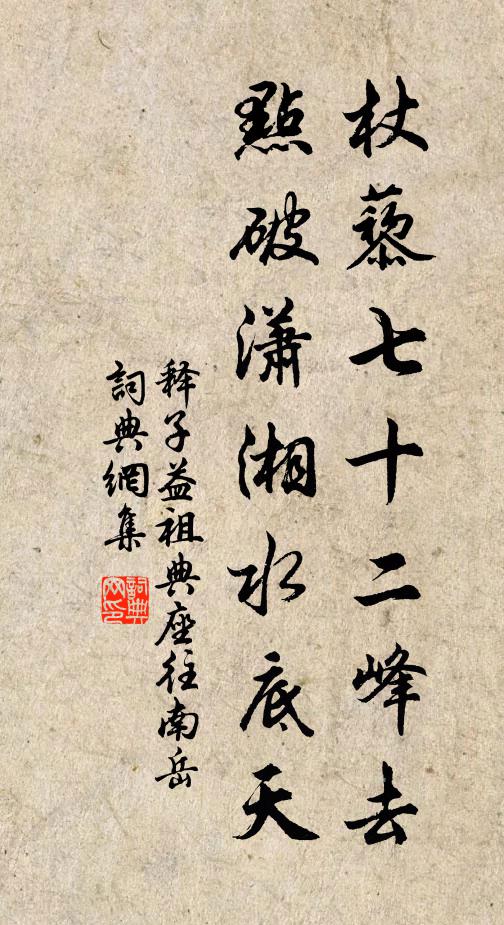 杖藜七十二峰去
點破瀟湘水底天
释子益祖典座往南岳
詞典網集
詞典
网印